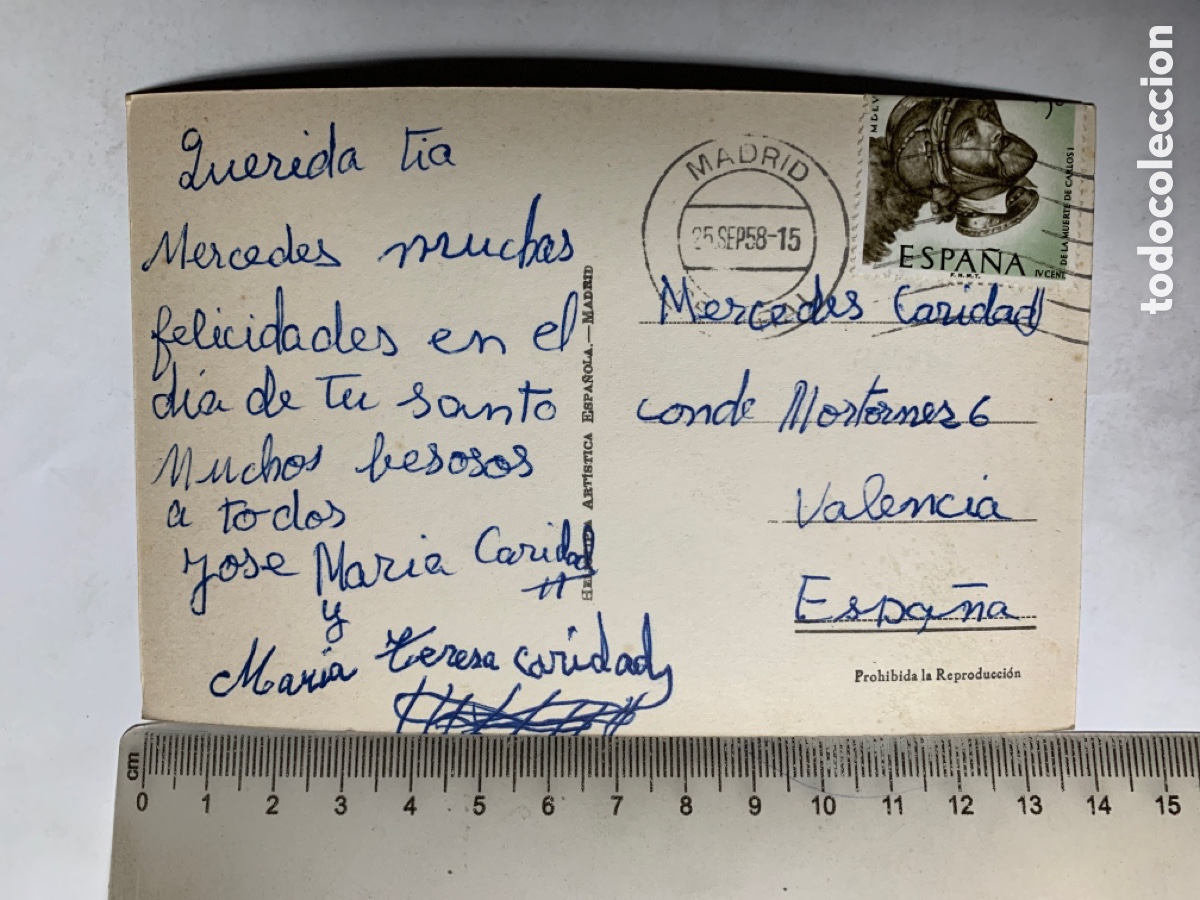 Querida tia
Mercedes muchas
felicidades en el
dia de tu santo
Muchos besosos
a todos
Jose Maria Caridad
y
Maria Teresa Caridad
ARTÍSTICA ESPAÑOLA.—MADRID
MADRID
25.SEP58-15
MDLV
ESPAÑA
F.N.M.T.
IV CENT. DE LA MUERTE DE CARLOS I
Mercedes Caridad
conde Mortornes 6
Valencia
España
Prohibida la Reproducción
cm
0 1 2 3 4 5 6 7 8 9 10 11 12 13 14 15
todocoleccion